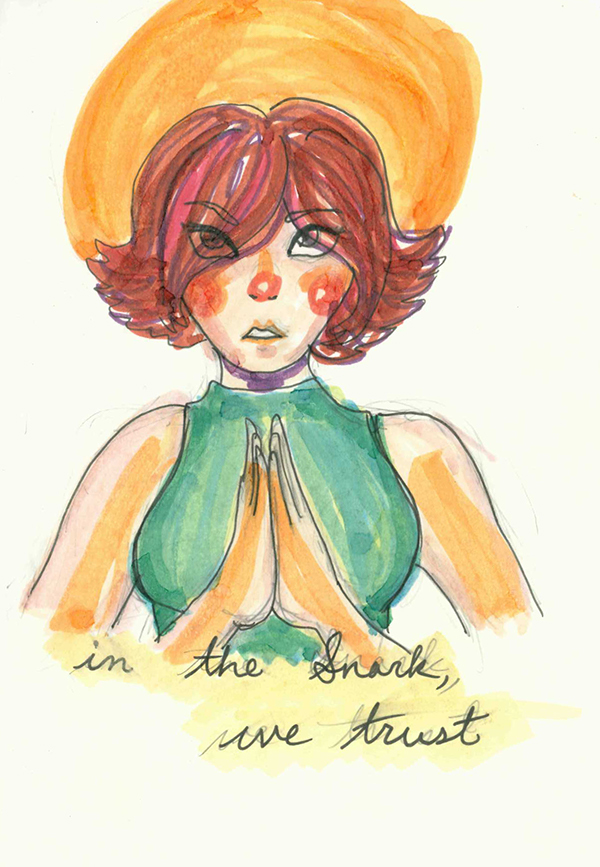 in the Snark,
we trust